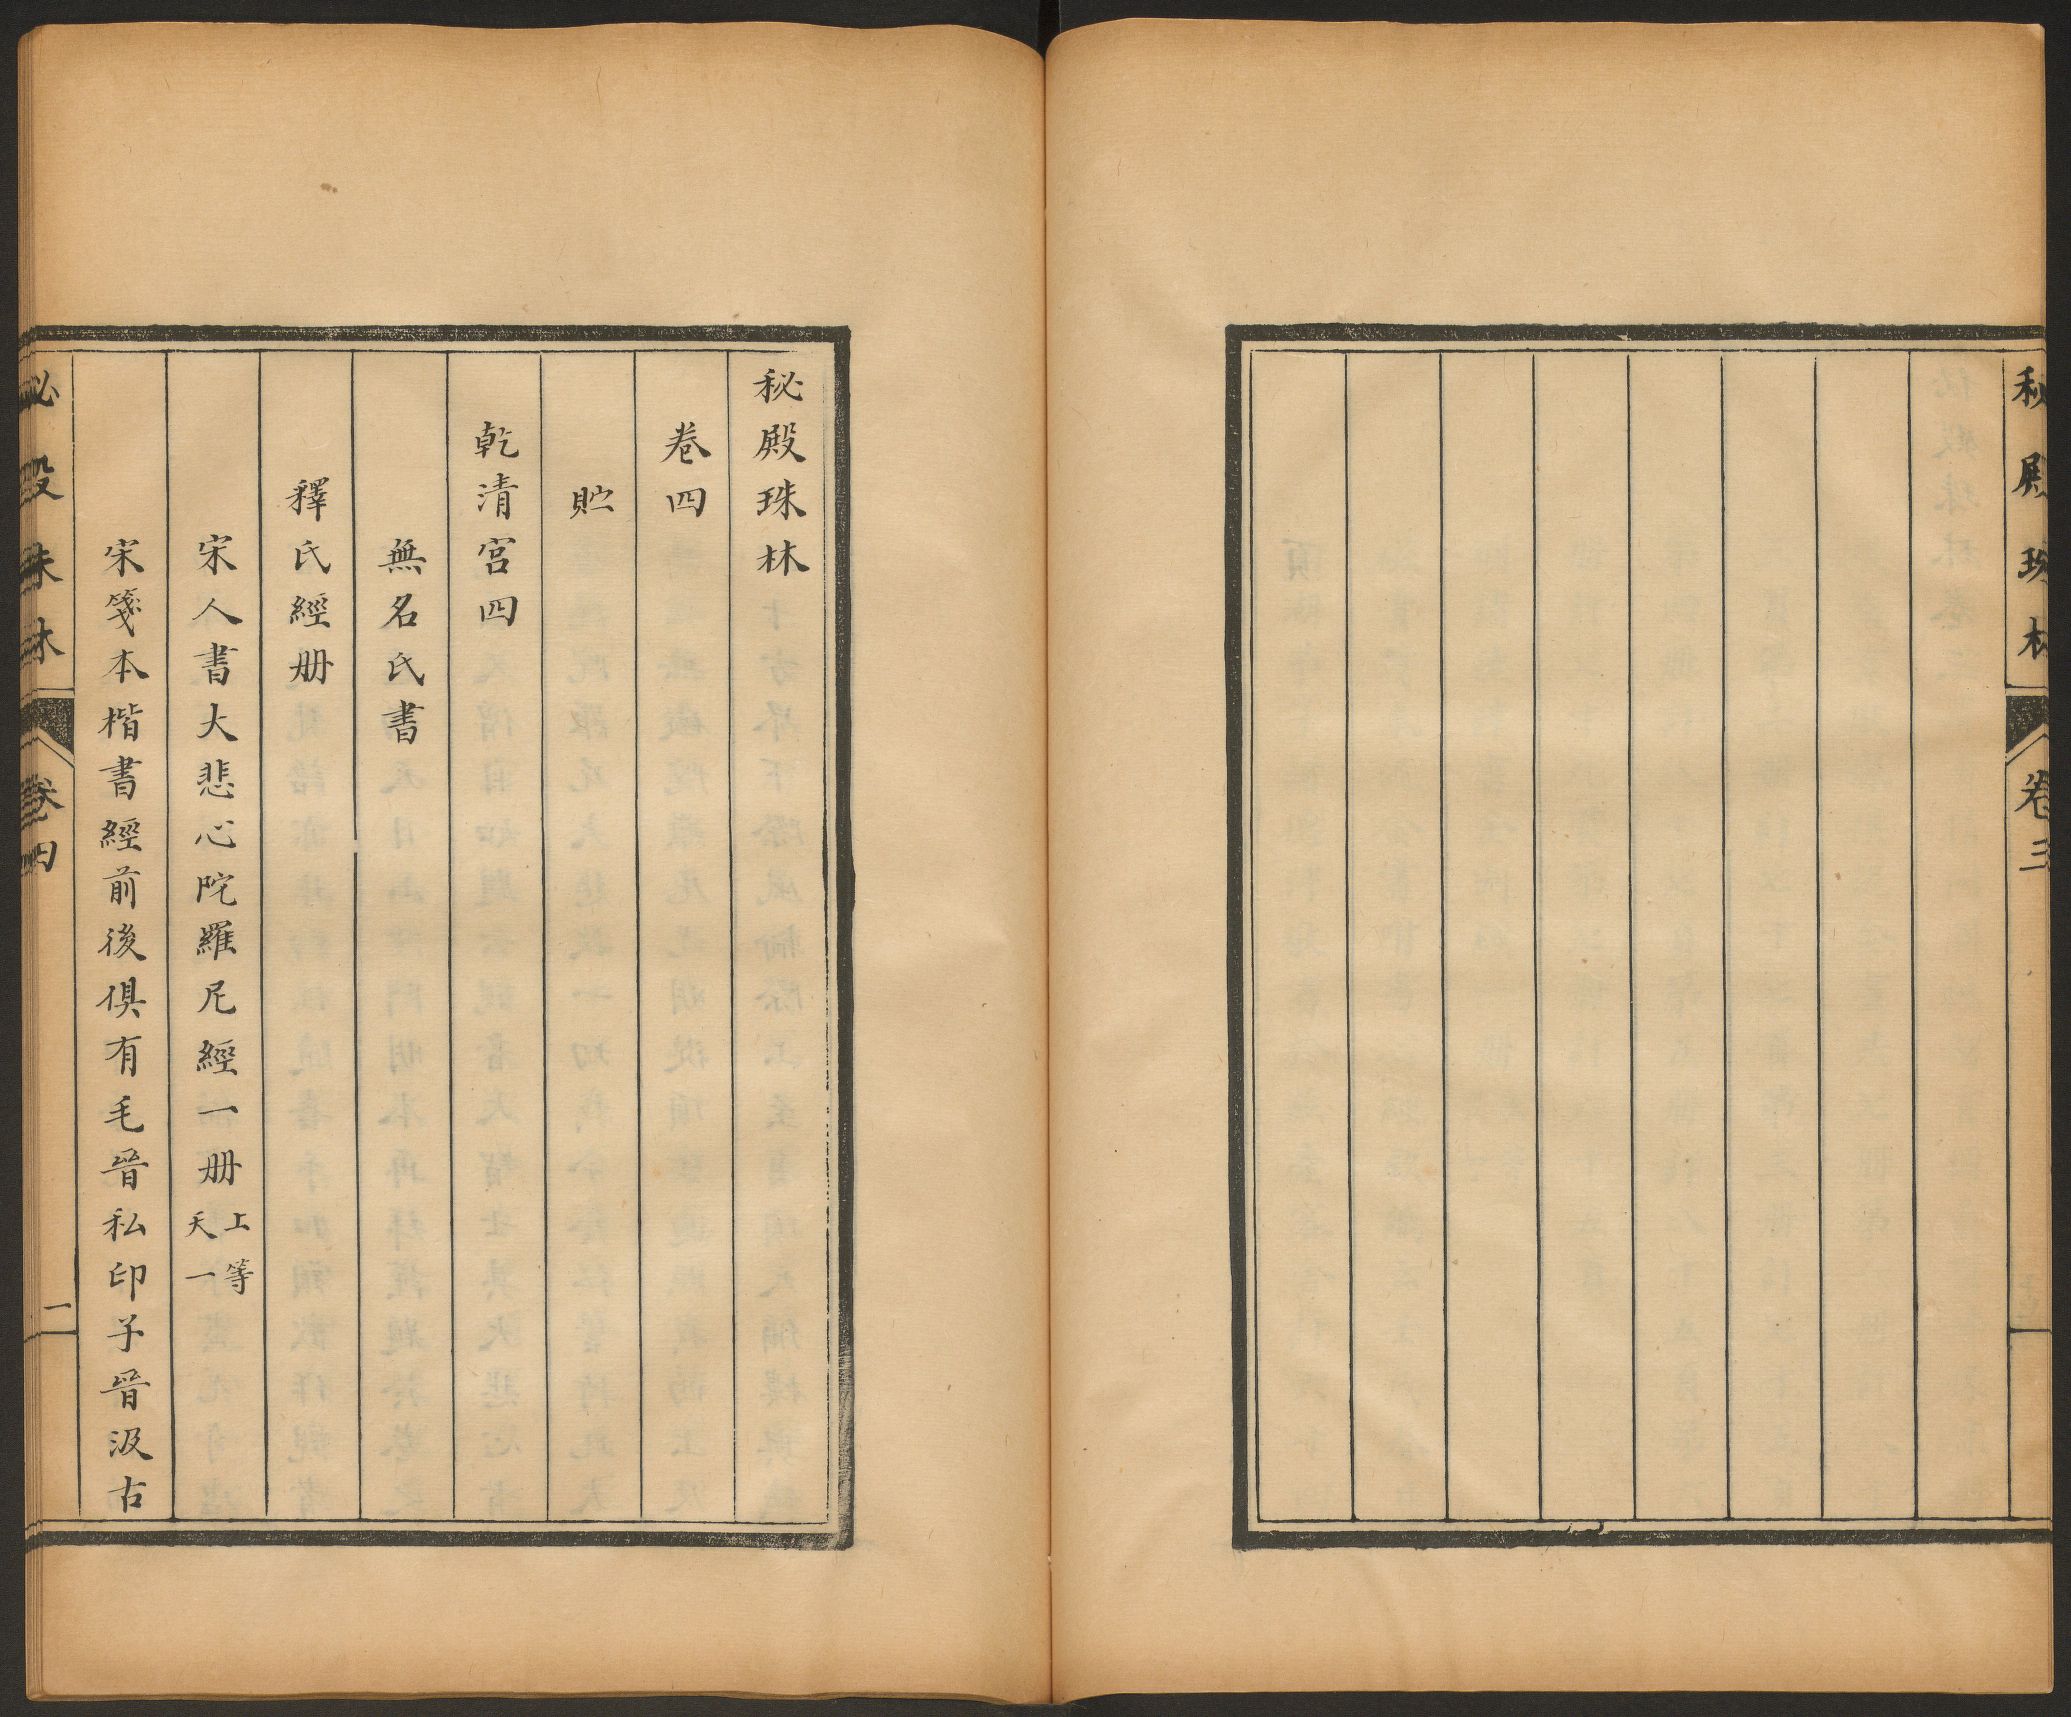 秘殿珠林
卷三
秘殿珠林
卷四
貯
乾清宮四
無名氏書
釋氏經册
宋人書大悲心陀羅尼經一册上等天一
宋箋本楷書經前後俱有毛晉私印子晉汲古
秘殿珠林
卷四
一